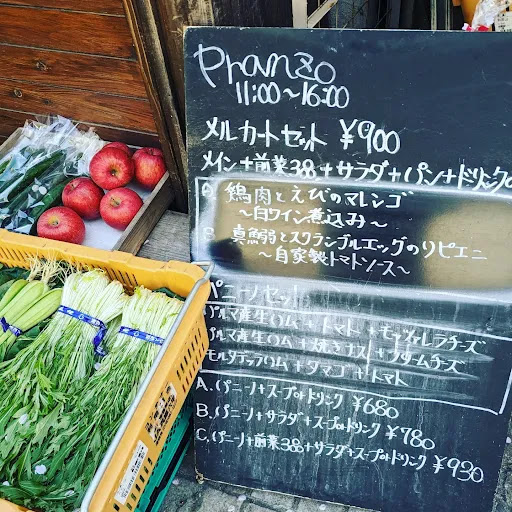 Pranzo
11:00〜16:00
メルカートセット ¥900
メイン+前菜3品+サラダ+パン+ドリンク
A. 鶏肉とえびのマレンゴ
〜白ワイン煮込み〜
B. 真鰯とスクランブルエッグのリピエニ
〜自家製トマトソース〜
パニーノセット
パルマ産生ハム + トマト + モッツァレラチーズ
パルマ産生ハム + 焼きナス + クリームチーズ
モルタデッラハム + タマゴ + トマト
A. パニーノ+スープorドリンク ¥680
B. パニーノ+サラダ+スープorドリンク ¥780
C. パニーノ+前菜3品+サラダ+スープorドリンク ¥930